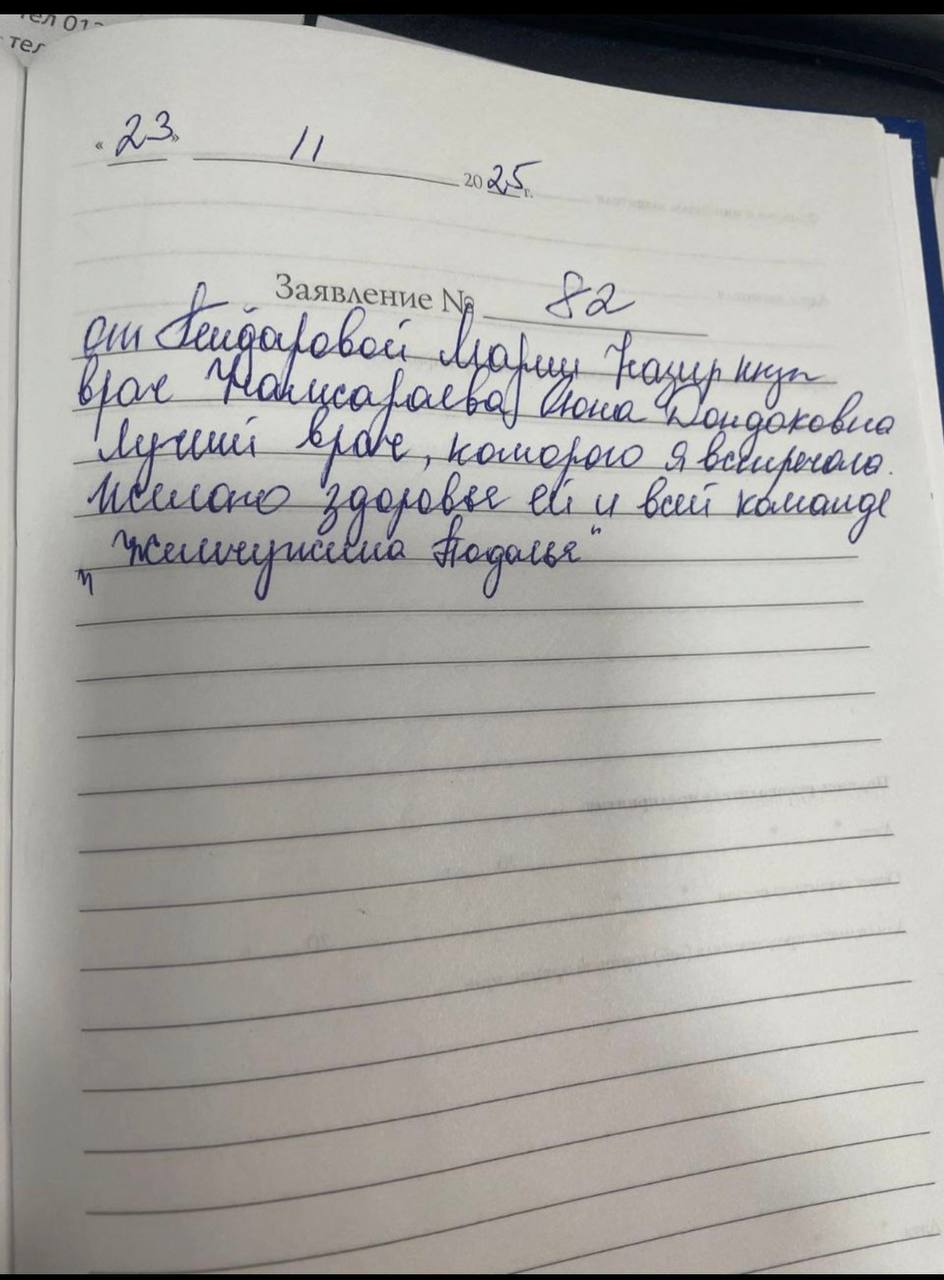 тел 012
тел
« 23 » 11 2025 г.
Заявление № 82
от Гейдаровой Марии
врач Намсараева Аюна Дондоковна
Лучший врач, которого я встречала.
Желаю здоровье ей и всей команде
"Жемчужина Подолья"